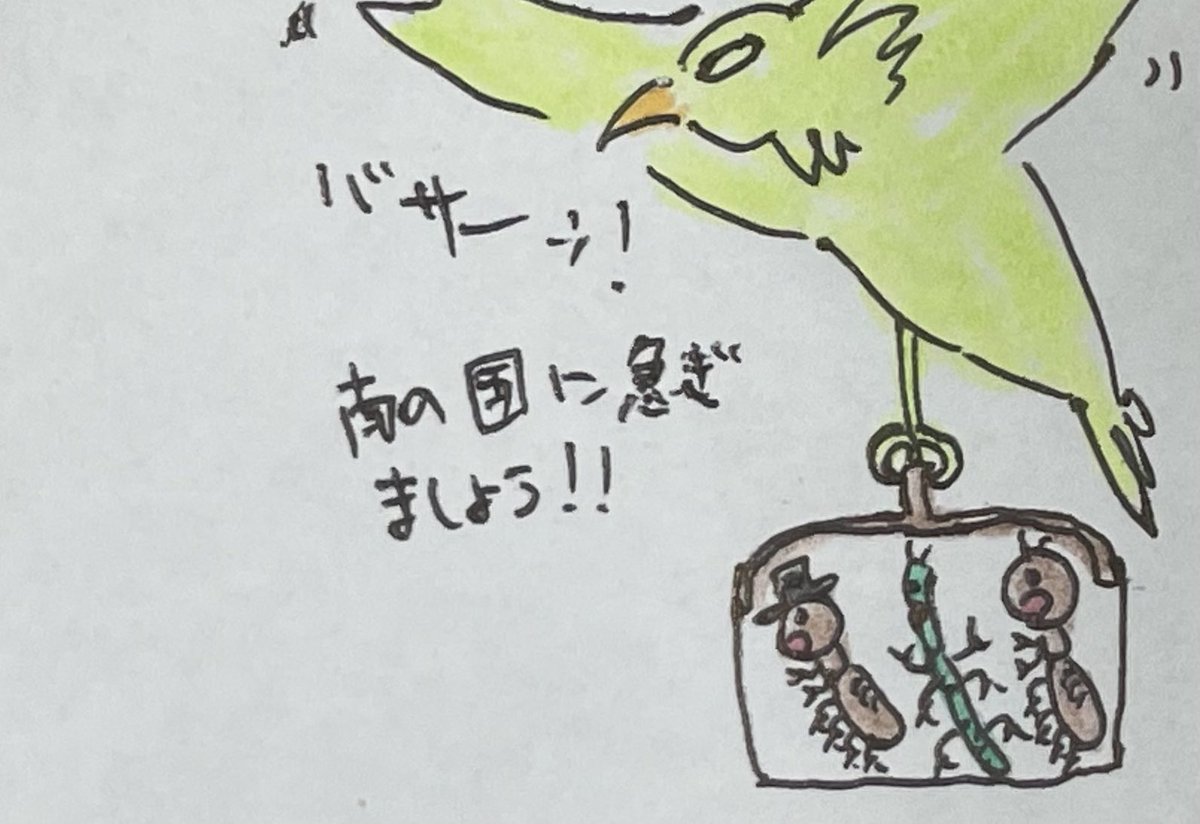 バサーッ!
南の国に急ぎ
ましょう!!